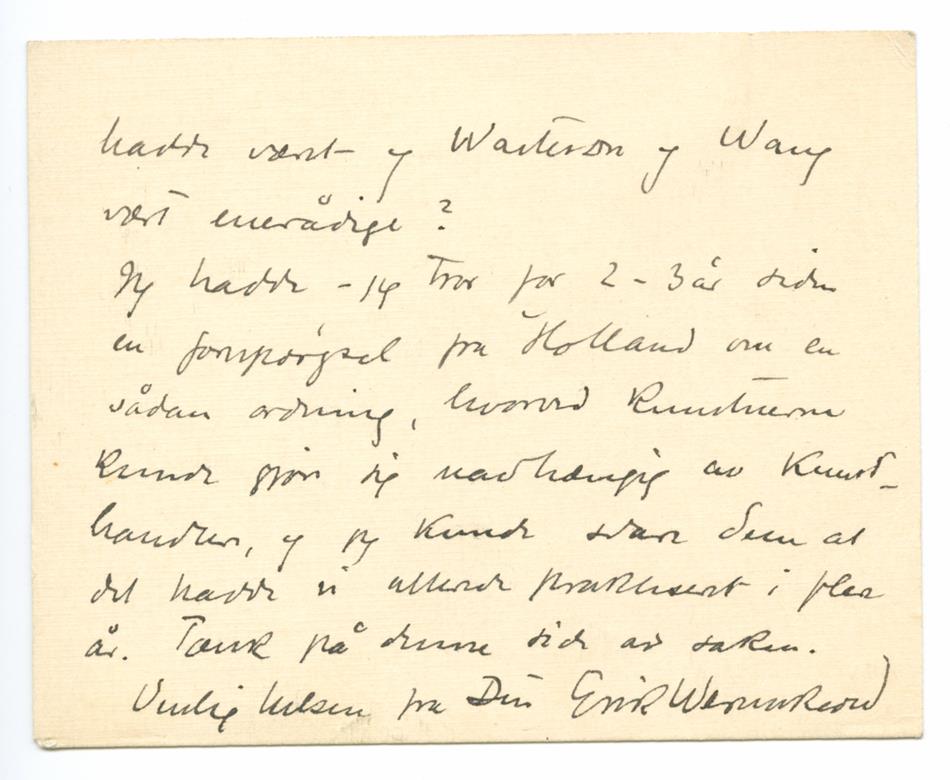 hadde været og Walterson og Wang
vært enerådige?
Jeg hadde - jeg tror for 2-3 år siden
en forespørgsel fra Holland om en
sådan ordning, hvorved Kunstnerne
kunde gjøre sig uavhængig av Kunst-
handler, og jeg kunde svare dem at
det hadde vi allerede praktisert i flere
år. Tænk på denne side av saken.
Venlig hilsen fra Din Erik Werenskiold